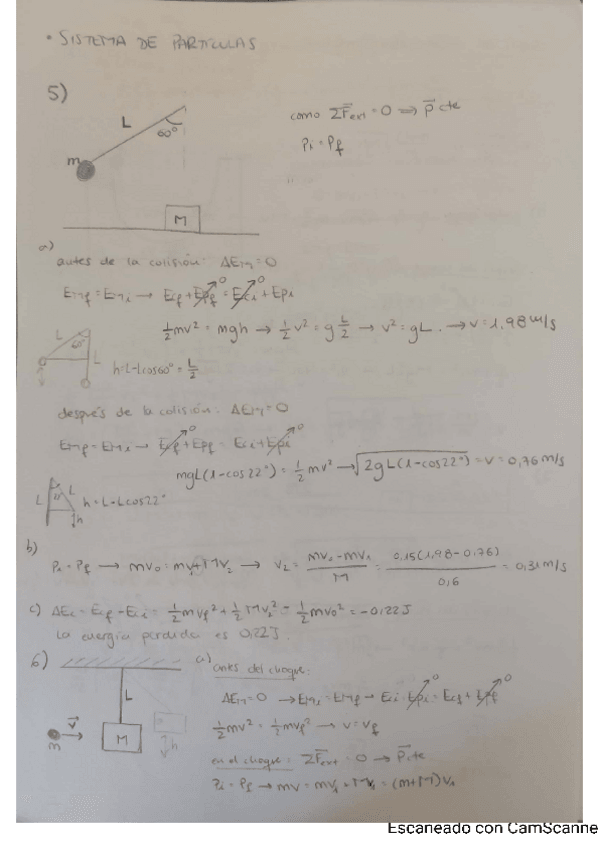 • SISTEMA DE PARTÍCULAS
5)
L
60°
m
M
como ΣF⃗ext = 0 ⟹ p⃗ cte
Pi = Pf
a)
antes de la colisión: ΔEm = 0
Emf = Emi → Ecf + Epf = Eci + Epi
0 0
½mv² = mgh → ½v² = g L/2 → v² = gL. → v = 1,98 m/s
L 60° L
h = L - Lcos60° = L/2
después de la colisión: ΔEm = 0
Emf = Emi → Ecf + Epf = Eci + Epi
0 0
mgL(1-cos22°) = ½mv² → √2gL(1-cos22°) = v = 0,76 m/s
L L h
h = L - Lcos22°
b)
Pi = Pf → mv₀ = mv₁ + MV₂ → V₂ = mv₀ - mv₁ / M = 0,15(1,98 - 0,76) / 0,6 = 0,31 m/s
c) ΔEc = Ecf - Eci = ½mvf² + ½MV₂² - ½mv₀² = -0,22J
La energía perdida es 0,22J.
6)
L
v⃗
m
M
h
a) antes del choque:
ΔEm = 0 → Emi = Emf → Eci + Epi = Ecf + Epf
0 0
½mv² = ½mvf² → v = vf
en el choque: ΣF⃗ext = 0 → p⃗ cte
Pi = Pf → mv = mv₁ + MV₁ = (m+M)V₁
Escaneado con CamScanne